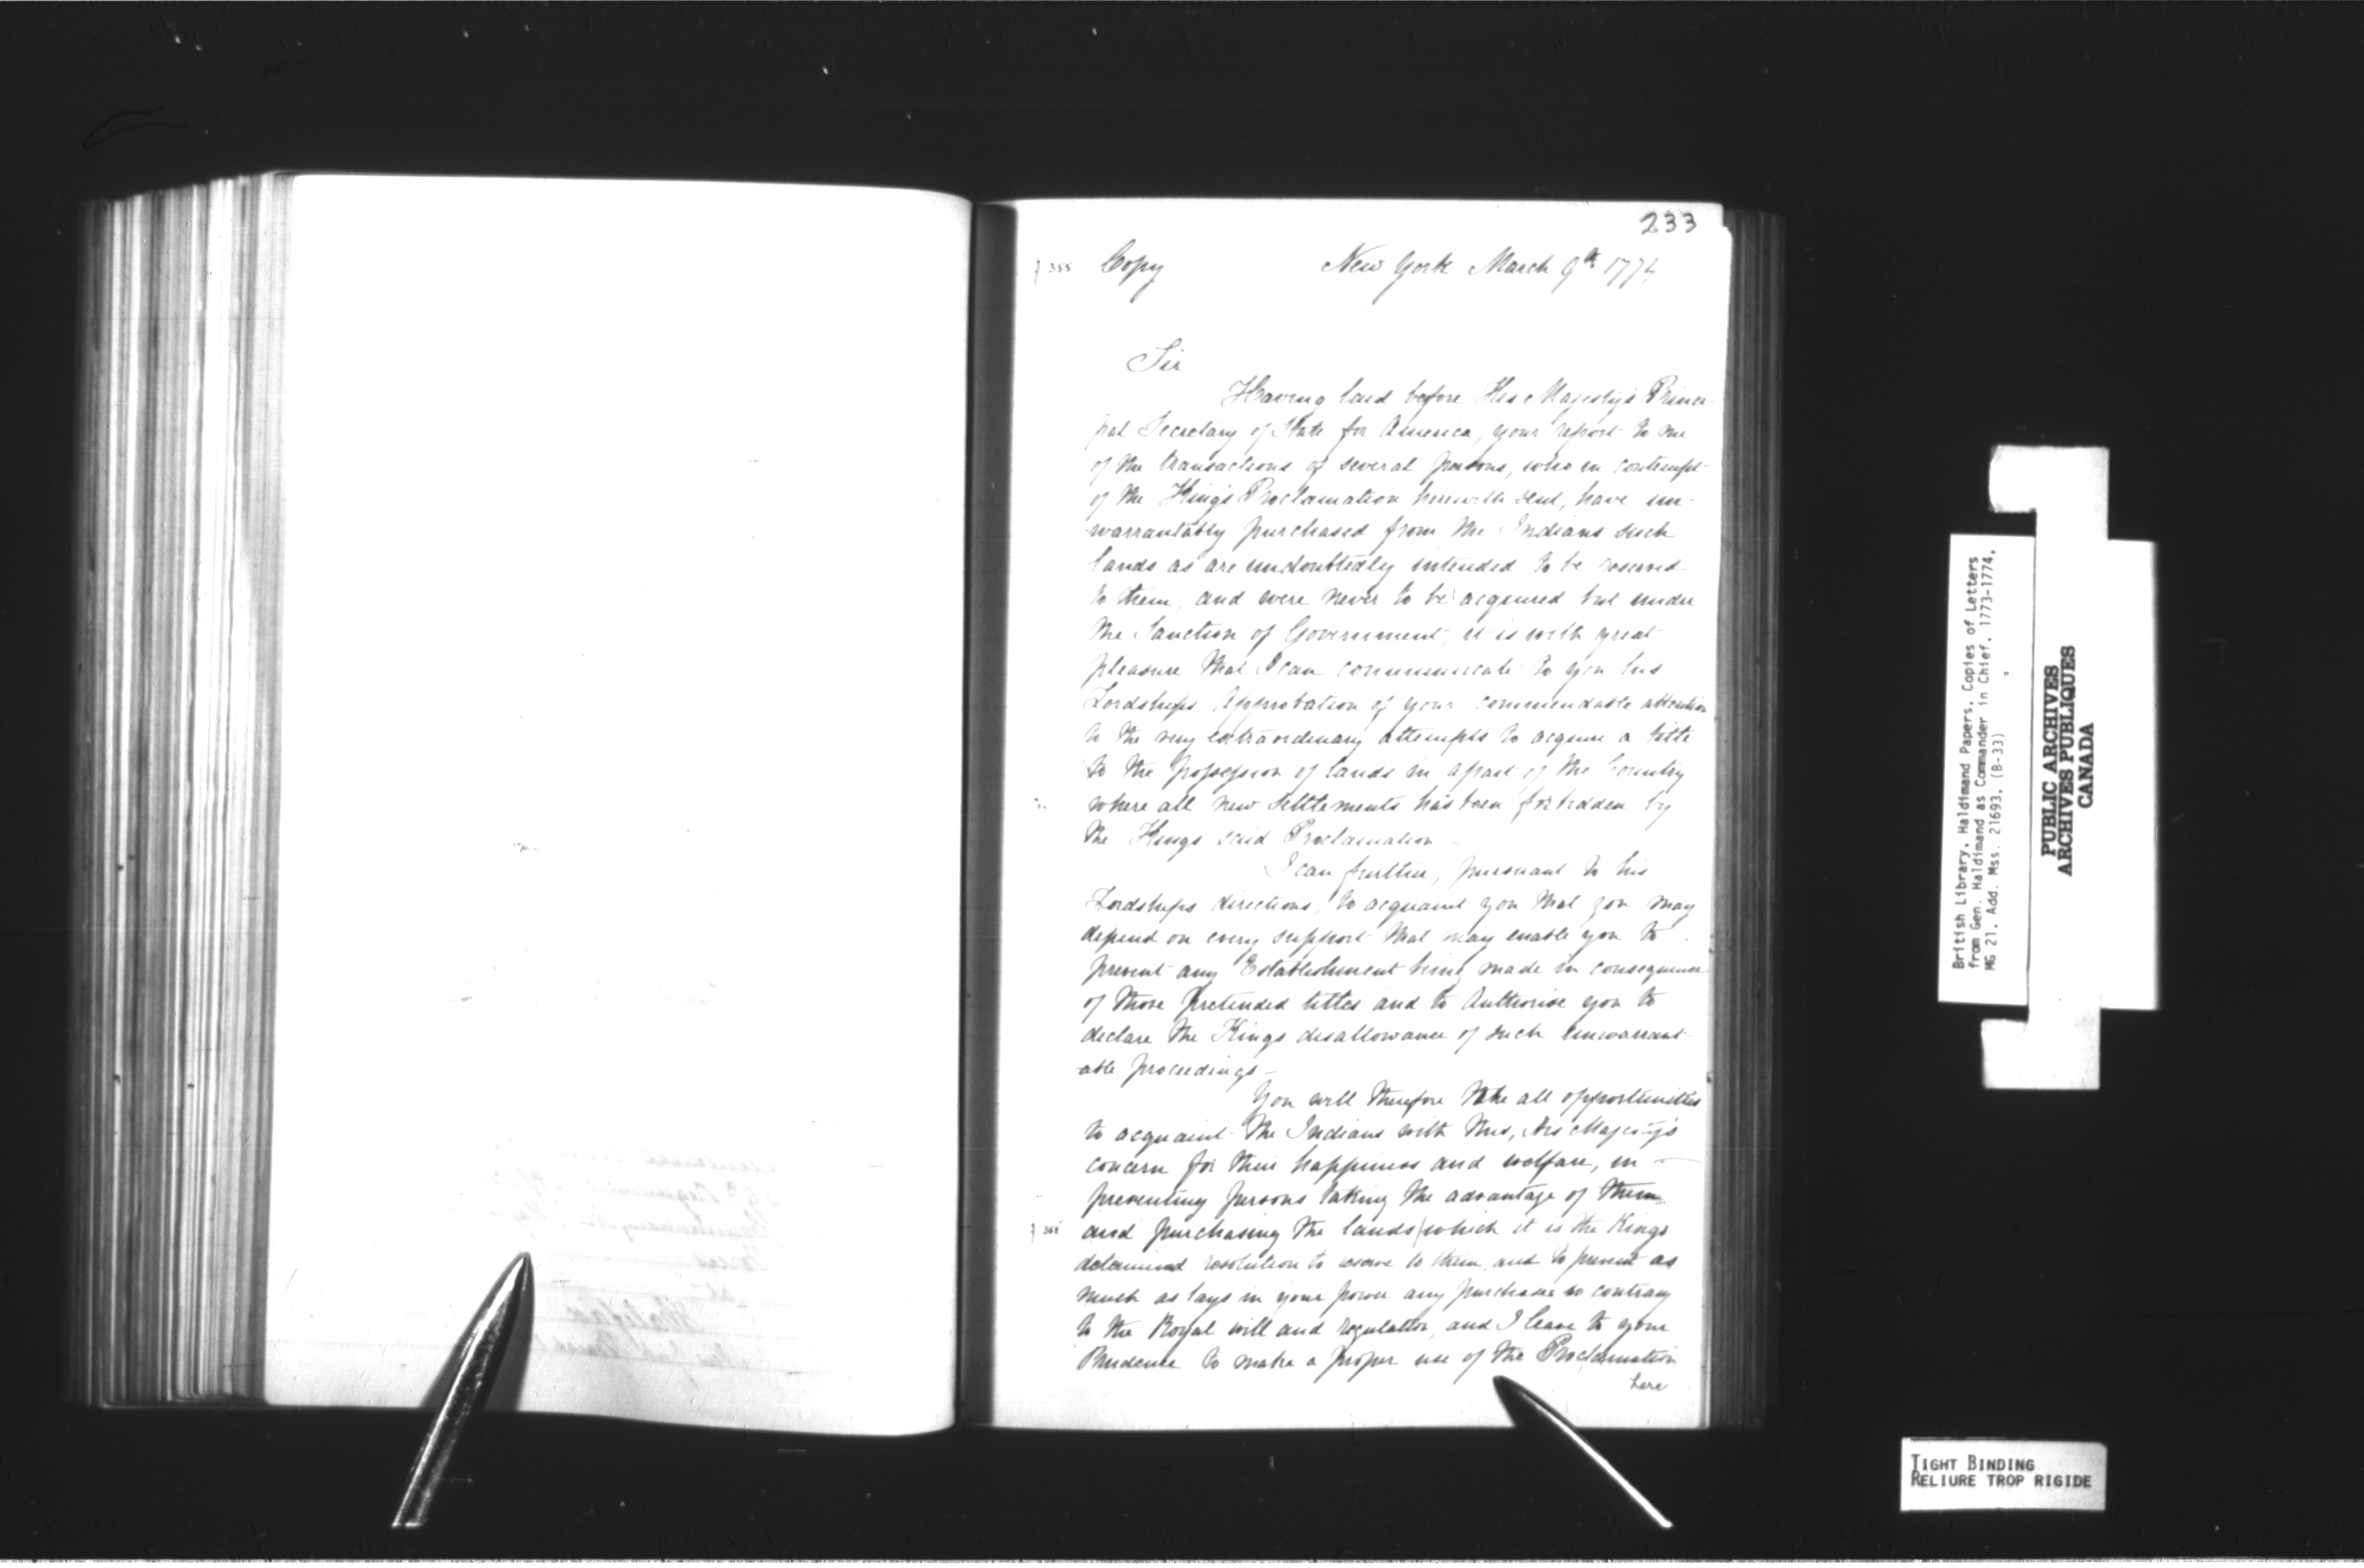 233
Copy New York March 9th 1774
Sir
Having laid before His Majesty's Princi-
pal Secretary of State for America, your report to me
of the transactions of several persons, who in contempt
of the King's Proclamation herewith sent, have un-
warrantably purchased from the Indians such
lands as are undoubtedly intended to be reserved
to them, and were never to be acquired but under
the Sanction of Government, it is with great
pleasure that I can communicate to you his
Lordships Approbation of your commendable attention
to the very extraordinary attempts to acquire a title
to the possession of lands in a part of the Country
where all new settlements has been forbidden by
the Kings said Proclamation
I can further, pursuant to his
Lordships directions, to acquaint you that you may
depend on every support that may enable you to
prevent any Establishment being made in consequence
of those pretended titles and to Authorise you to
declare the Kings disallowance of such unwarrant-
able proceedings -
You will therefore take all opportunities
to acquaint the Indians with this, His Majesty's
concern for their happiness and welfare, in -
preventing persons taking the advantage of them
and purchasing the lands which it is the Kings
determind resolution to reserve to them and to prevent as
much as lays in your power any purchase so contrary
to the Royal will and regulation, and I leave to your
Prudence to make a proper use of the Proclamation
here
British Library, Haldimand Papers, Copies of Letters
from Gen. Haldimand as Commander in Chief, 1773-1774.
MG 21, Add. Mss. 21693, (B-33)
PUBLIC ARCHIVES
ARCHIVES PUBLIQUES
CANADA
TIGHT BINDING
RELIURE TROP RIGIDE